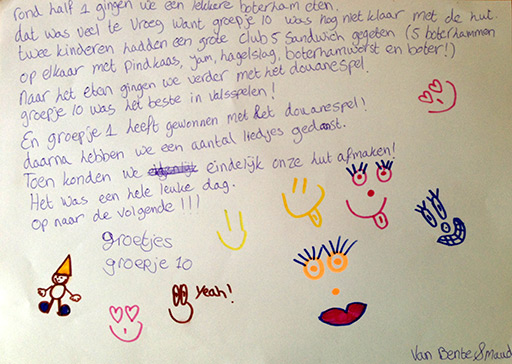 rond half 1 gingen we een lekkere boterham eten.
dat was veel te vroeg want groepje 10 was nog niet klaar met de hut.
twee kinderen hadden een grote club 5 sandwich gegeten (5 boterhammen
op elkaar met pindkaas, yam, hagelslag, boterhamworst en boter!)
Naar het eten gingen we verder met het douanespel.
groepje 10 was het beste in valsspelen!
En groepje 1 heeft gewonnen met het douanespel!
daarna hebben we een aantal liedjes gedanst.
Toen konden we eindelijk onze hut afmaken!
Het was een hele leuke dag.
op naar de volgende!!!
groetjes
groepje 10
Yeah!
Van Bente & Maud